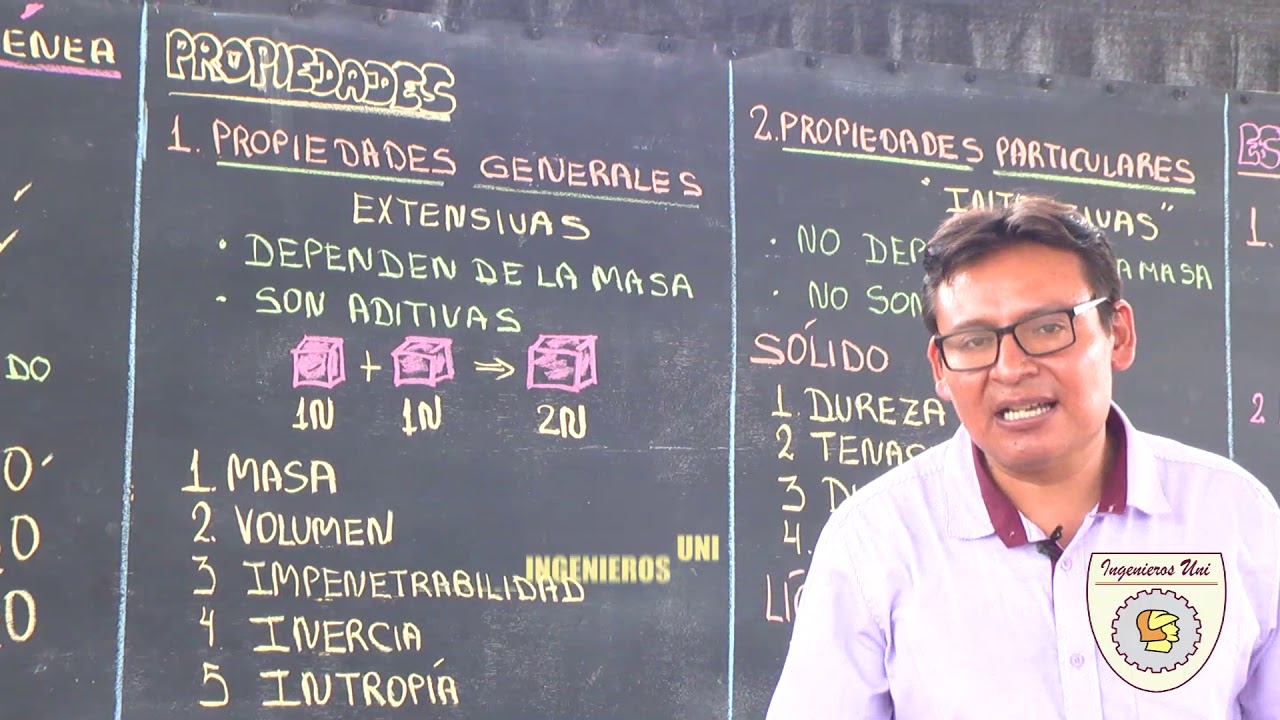 ÉNEA
DO
PROPIEDADES
1. PROPIEDADES GENERALES
EXTENSIVAS
• DEPENDEN DE LA MASA
• SON ADITIVAS
+ ⇒
1N 1N 2N
1. MASA
2. VOLUMEN
3 IMPENETRABILIDAD
4 INERCIA
5 INTROPÍA
2. PROPIEDADES PARTICULARES
• NO MASA
• NO SON
SÓLIDO
1. DUREZA
2
3
4.
1.
2
INGENIEROS UNI
Ingenieros Uni